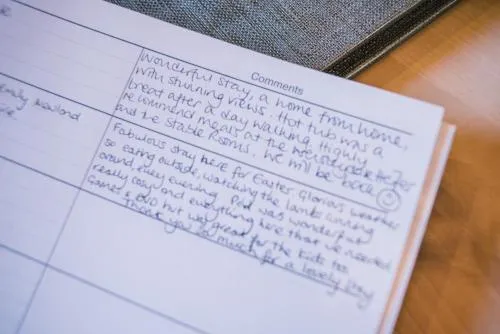 Comments
Wonderful stay, a home from home,
with stunning views. Hot tub was a
treat after a day walking. Highly
recommend meals at the
and the Stable Rooms. We will be back ☺
Fabulous stay here for Easter. Glorious weather
so eating outside, watching the lambs running
around, every evening. Pod was wonderful
really cosy and everything here that we needed
Games & DVD hut was great for the kids too
Thank you so much for a lovely stay